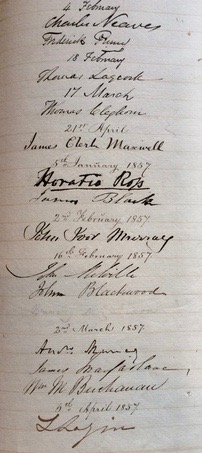 4 February
Charles Neaves
Frederick Penny
18 February
Thomas Laycock
17 March
Thomas Cleghorn
21st April
James Clerk Maxwell
5th January 1857
Horatio Ross
James Black
2nd February 1857
John Foot Murray
16th February 1857
John Melville
John Blackwood
2nd March 1857
Andw Murray
James Macfarlane
Wm M Buchanan
6th April 1857
T Login